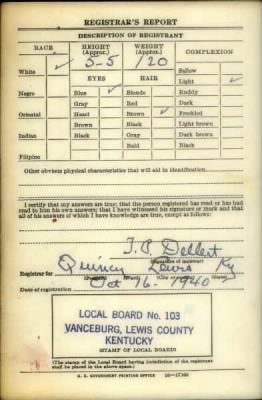 REGISTRAR'S REPORT
DESCRIPTION OF REGISTRANT
RACE HEIGHT (Approx.) WEIGHT (Approx.) COMPLEXION
5-5 120 Sallow
White ✓ EYES HAIR Light ✓
Negro Blue ✓ Blonde Ruddy
Gray Red Dark
Oriental Hazel Brown ✓ Freckled
Brown Black Light brown
Indian Black Gray Dark brown
Bald Black
Filipino
Other obvious physical characteristics that will aid in identification
I certify that my answers are true; that the person registered has read or has had
read to him his own answers; that I have witnessed his signature or mark and that
all of his answers of which I have knowledge are true, except as follows:
(Signature of registrar)
Registrar for Quincy Lewis Ky
Date of registration Oct 16- 1940
LOCAL BOARD No. 103
VANCEBURG, LEWIS COUNTY
KENTUCKY
(STAMP OF LOCAL BOARD)
(The stamp of the Local Board having jurisdiction of the registrant
shall be placed in the above space.)
U. S. GOVERNMENT PRINTING OFFICE